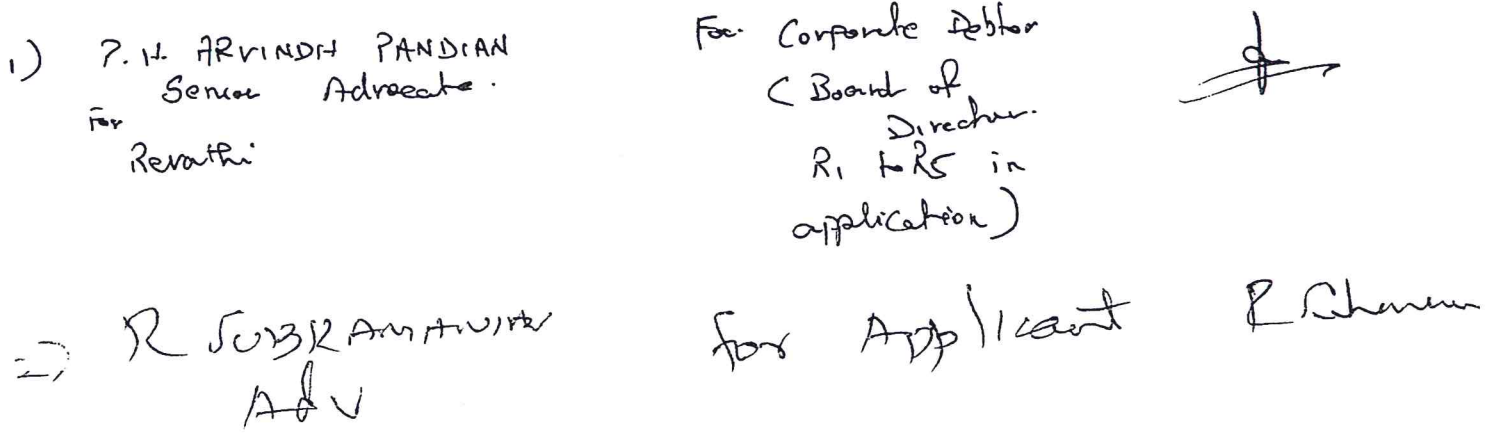 1) P. H. ARVINDH PANDIAN
Senior Advocate.
For
Revathi
For Corporate Debtor
( Board of
Director.
R1 to R5 in
application)
2) R SUBRAMANIAN
Adv
for Applicant